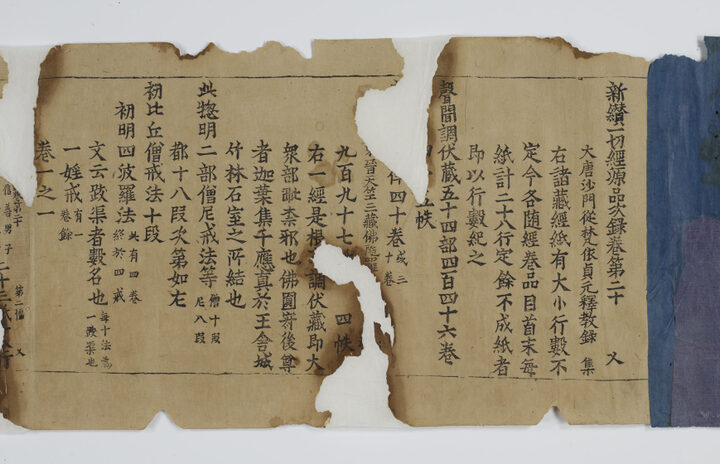 新纘一切經源品次録卷第二十 㕛
大唐沙門從梵依貞元釋教録 集
右諸藏經紙有大小行數不
定今各随經卷品目首末每
紙計二十八行定餘不成紙者
即以行數紀之
聲聞調伏藏五十四部四百四十六卷
帙
律四十卷 或三十卷
晉天竺三藏佛陁
九百九十七 四帙
右一經是根 調伏藏即大
衆部 奉邪也佛圓寂後尊
者迦葉集千應真於王舍城
竹林石室之所結也
此惣明二部僧尼戒法等 僧十段 尼八段
都十八段次第如左
初比丘僧戒法十段
初明四波羅法 此有四卷 終於四戒
文云跋渠者數名也 每十法為 一跋渠也
一婬戒 有一卷餘
卷一之一
第二幅 㕛
信善男子 二十三紙 行